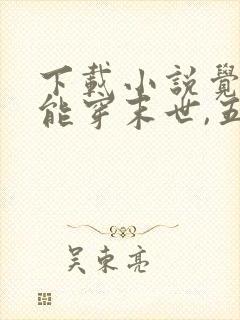 下載小說覺
能穿末世,五
吴東亮